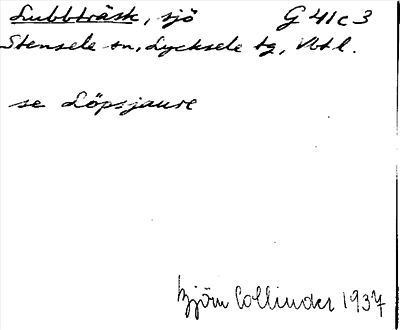 Lubbträsk, sjö G 41c3
Stensele sn, Lycksele tg, Vbtl.
se Löpsjaure
Björn Collinder 1937